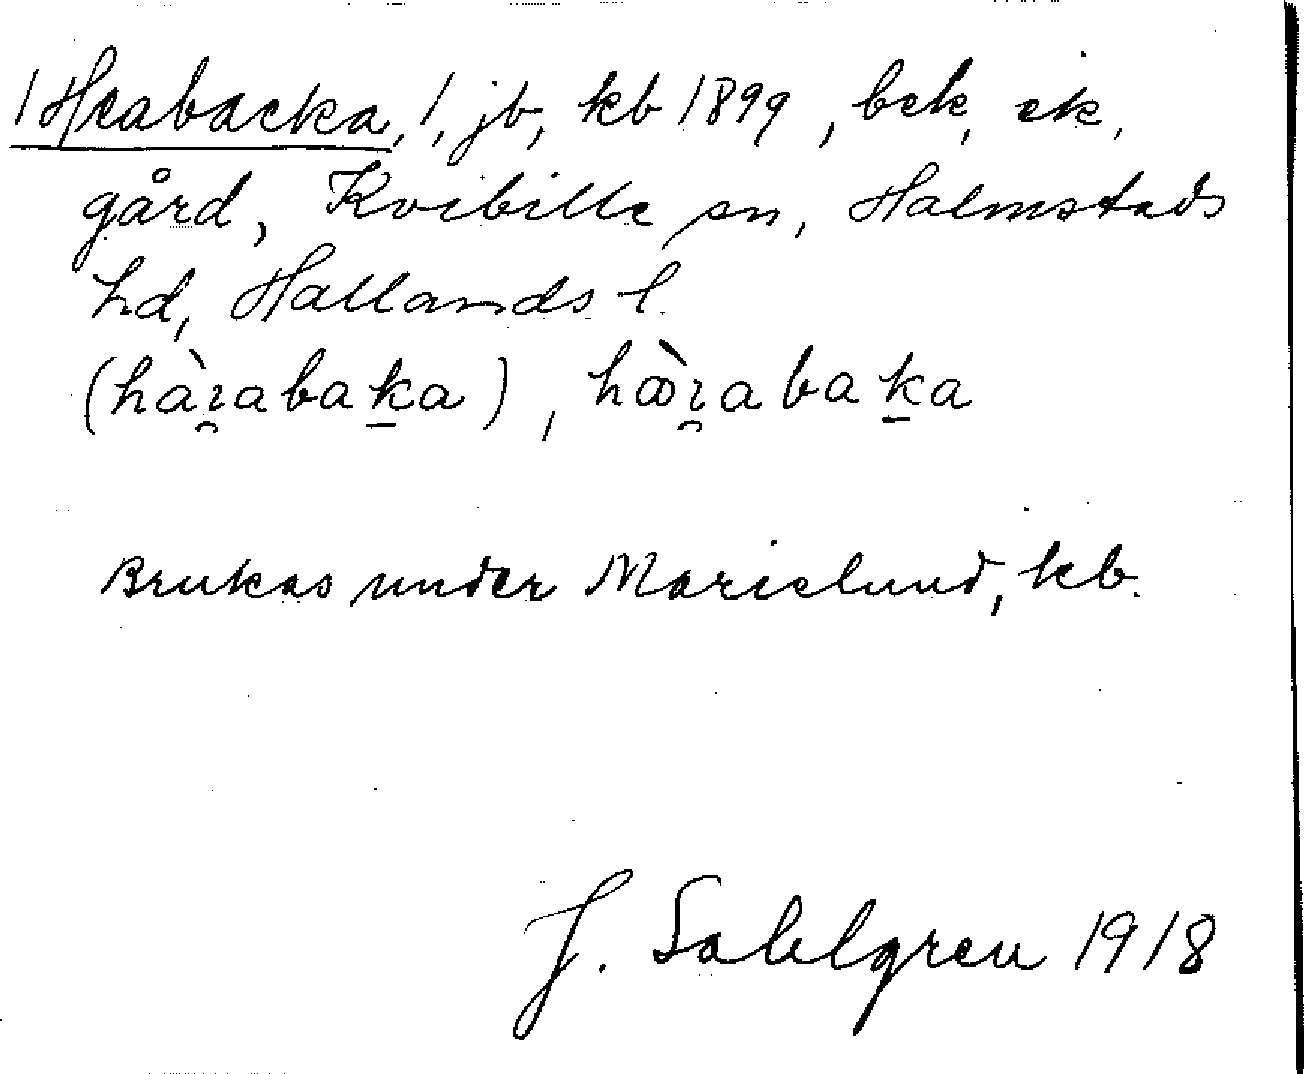 1 Hrabacka, 1, jb, kb 1899, bek, ek,
gård, Kvibille sn, Halmstads
hd, Hallands l.
(hàrabaka), hòrabaka
Brukas under Marielund, kb.
J. Sahlgren 1918